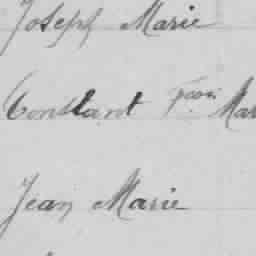 Joseph Marie
Constant Fçois Mar
Jean Marie